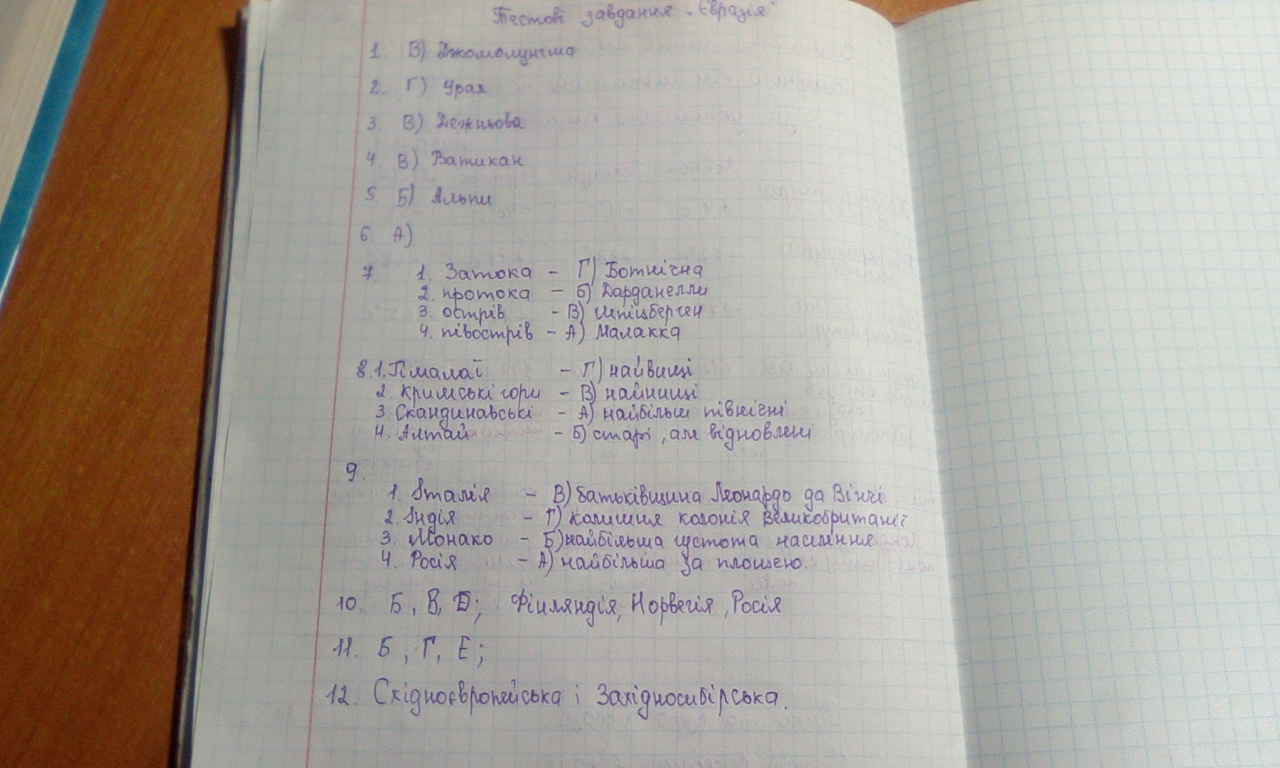 Тестові завдання „Євразія"
1. В) Джомолунгма
2. Г) Урал
3. В) Дежньова
4. В) Ватикан
5. Б) Альпи
6. А)
7. 1. Затока – Г) Ботнічна
2. протока – Б) Дарданелли
3. острів – В) Шпіцберген
4. півострів – А) Малакка
8. 1. Гімалаї – Г) найвищі
2. Кримські гори – В) найнищі
3. Скандинавські – А) найбільш північні
4. Алтай – Б) старі, але відновлені
9.
1. Італія – В) батьківщина Леонардо да Вінчі
2. Індія – Г) колишня колонія Великобританії
3. Монако – Б) найбільша густота населення
4. Росія – А) найбільша за площею.
10. Б, В, Д; Фінляндія, Норвегія, Росія
11. Б, Г, Е;
12. Східноєвропейська і Західносибірська.